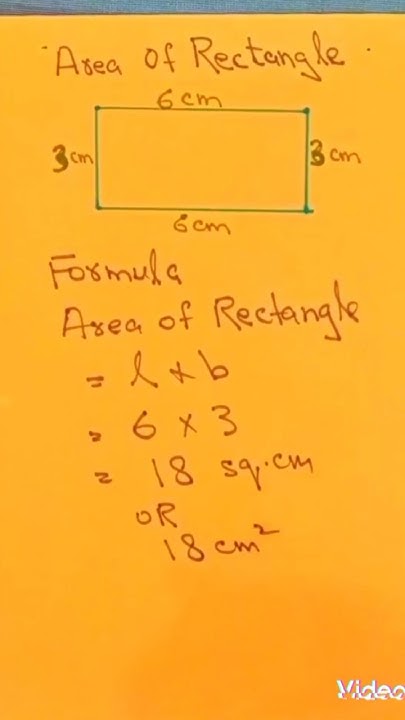 Area Of Rectangle
6cm
3cm
3cm
6cm
Formula
Area of Rectangle
= l × b
= 6 × 3
= 18 sq.cm
OR
18 cm²
Video